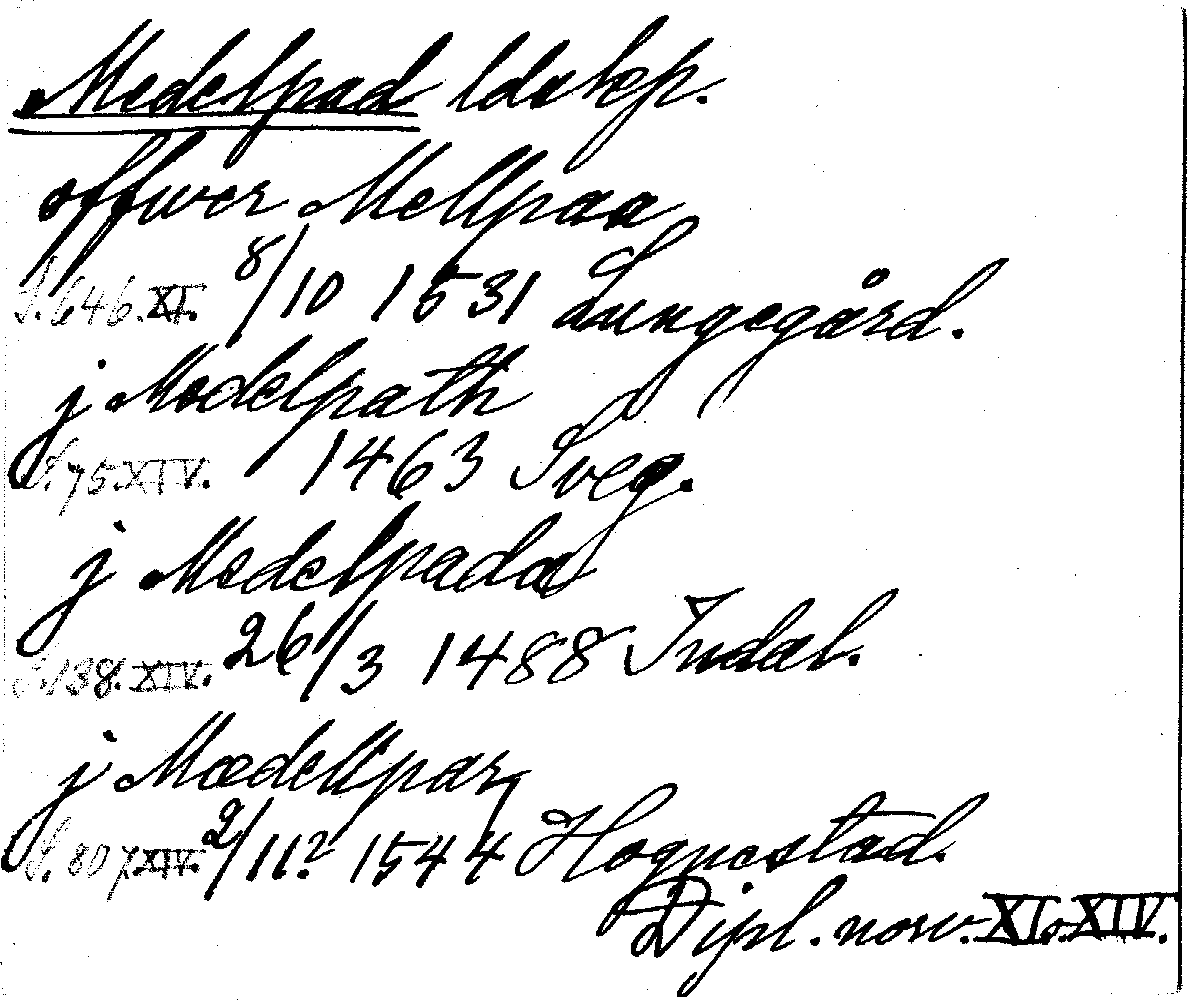 Medelpad ldskp.
offwer Mellpaa
S. 646. XI. 8/10 1531 Lungegård.
j Medelpath
S. 75. XIV. 1463 Sveg.
j Medelpada
S. 138. XIV. 26/3 1488 Indal.
j Mædellpar
S. 807 XIV. 2/11? 1544 Hognestad.
Dipl. norv. XI o. XIV.